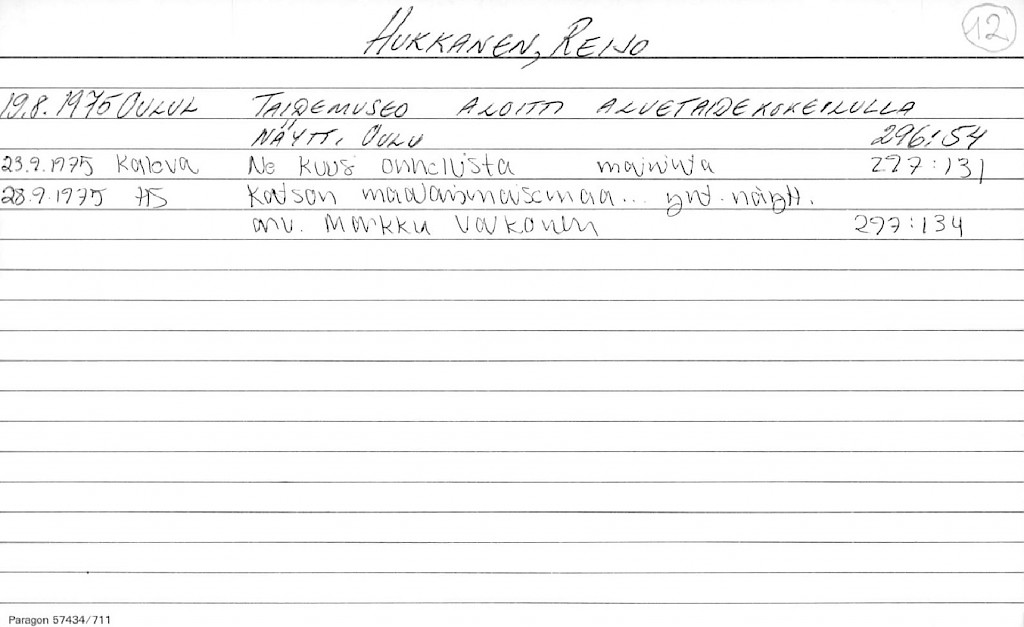 HUKKANEN, REIJO
12
19.8.1975 OULUL TAIDEMUSEO ALOITTI ALUETAIDEKOKEILULLA
NÄYTT. OULU 296:54
23.9.1975 Kaleva Ne kuusi onnellista maininta 297:131
28.9.1975 HS Katson maalaismaisemaa... ynt. näytt.
arv. Markku Valkonen 297:134
Paragon 57434/711